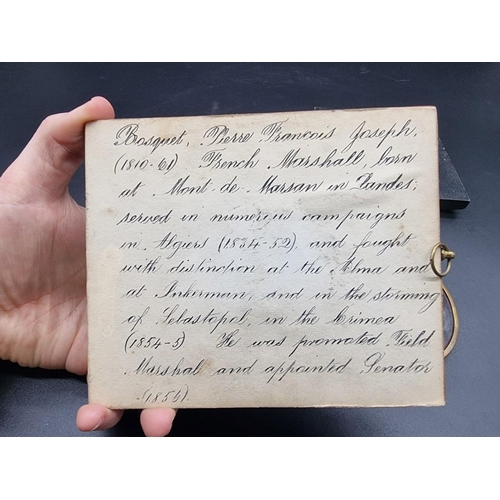 Bosquet, Pierre Francois Joseph,
(1810-61) French Marshall, born
at Mont-de-Marsan in Landes;
served in numerous campaigns
in Algiers (1834-52), and fought
with distinction at the Alma and
at Inkerman, and in the storming
of Sebastopol, in the Crimea
(1854-5) He was promoted Field
Marshal and appointed Senator
(1856).